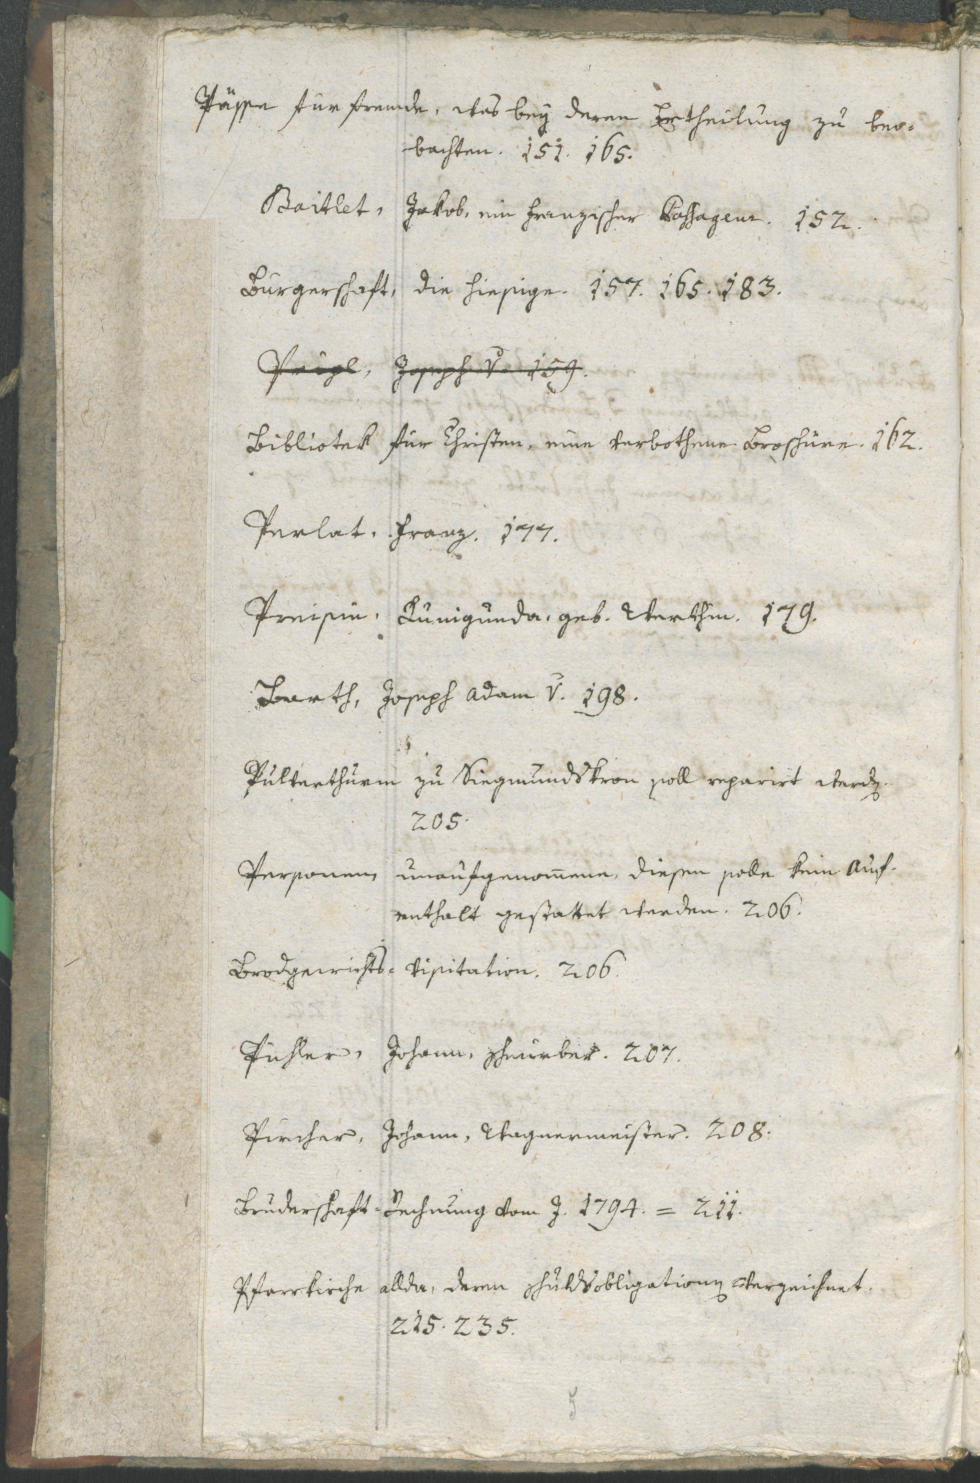 Pässe für fremde, was bey deren Ertheilung zu beo-
bachten. 151. 165.
Baitlet, Jakob, ein französischer Passageur. 152.
Burgerschaft, die hiesige. 157. 165. 183.
Joseph v. 159.
Bibliotek für Christen, eine verbothene Broschüre. 162.
Perlat, Franz. 177.
Preisin, Kunigunda, geb. 179.
Barth, Joseph Adam v. 198.
Pulverthurm zu Siegmundskron soll reparirt werden
205.
Personen, unaufgenom̄ene, diesen solle kein Auf-
enthalt gestattet werden. 206.
Brodgewichts- visitation. 206.
Pichler, Johann, 207.
Pircher, Johann, Wagnermeister. 208.
Bruderschaft-Rechnung vom J. 1794. = 211.
Pfarrkirche allda, deren Schuldobligationen verzeichnet.
215. 235.
5